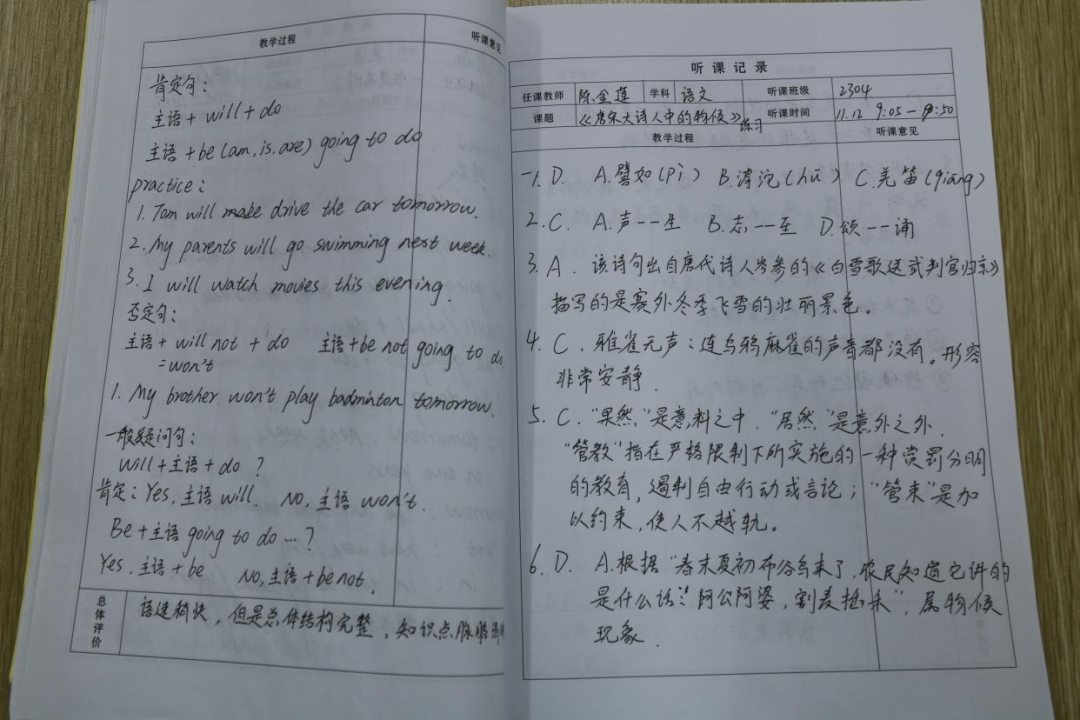 教学过程 听课意见
肯定句：
主语 + will + do
主语 + be (am, is, are) going to do
practice：
1. Tom will make drive the car tomorrow.
2. My parents will go swimming next week.
3. I will watch movies this evening.
否定句：
主语 + will not + do 主语 + be not going to do
= won't
1. My brother won't play badminton tomorrow.
一般疑问句：
Will + 主语 + do ?
肯定：Yes, 主语 will. No, 主语 won't.
Be + 主语 going to do … ?
Yes, 主语 + be No, 主语 + be not.
总体评价
语速稍快，但是总体结构完整，知识点脉络清
听课记录
任课教师 陈金莲 学科 语文 听课班级 2304
课题 《唐宋大诗人中的物候》练习 听课时间 11.12 9:05 — 9:50
教学过程 听课意见
一1. D. A.譬如(pì) B.滹沱(hū) C.羌笛(qiāng)
2. C. A.声——生 B.志——至 D.颂——诵
3. A. 该诗句出自唐代诗人岑参的《白雪歌送武判官归京》
描写的是塞外冬季飞雪的壮丽景色。
4. C. 雅雀无声：连乌鸦麻雀的声音都没有。形容
非常安静.
5. C. “果然”是意料之中，“居然”是意外之外.
“管教”指在严格限制下所实施的一种赏罚分明
的教育，遏制自由行动或言论；“管束”是加
以约束，使人不越轨。
6. D. A.根据“春末夏初布谷鸟来了，农民知道它讲的
是什么话：‘阿公阿婆，割麦插禾’”，属物候
现象.